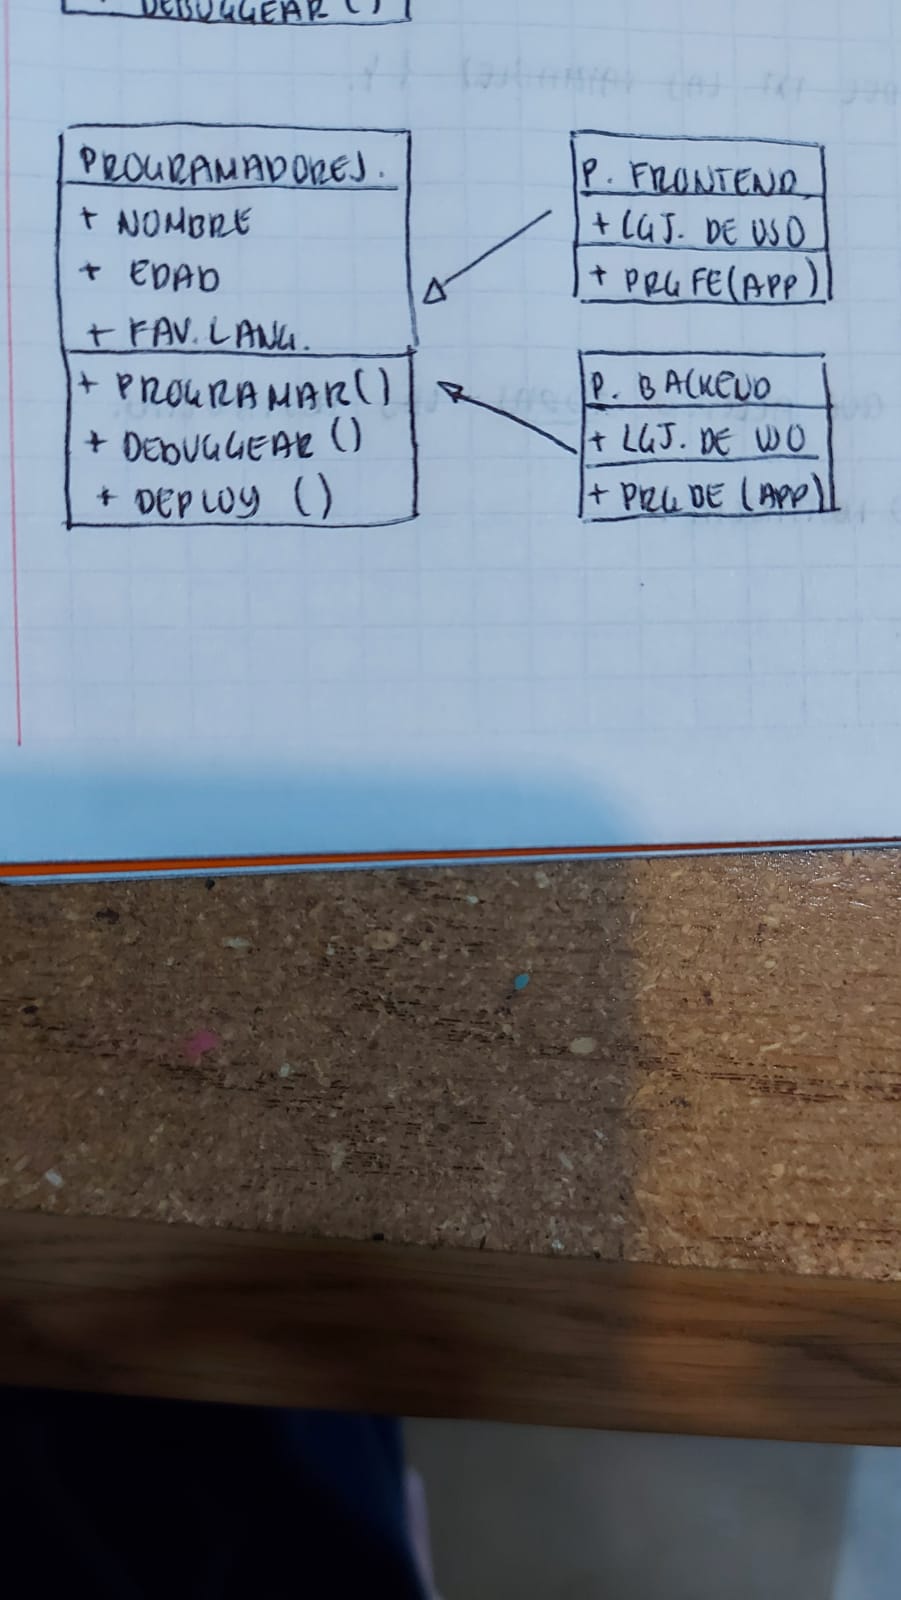 DEBUGGEAR ()
PROGRAMADORES.
+ NOMBRE
+ EDAD
+ FAV. LANG.
+ PROGRAMAR()
+ DEBUGGEAR ()
+ DEPLOY ()
P. FRONTEND
+ LGJ. DE USO
+ PRG FE(APP)
P. BACKEND
+ LGJ. DE USO
+ PRG DE (APP)